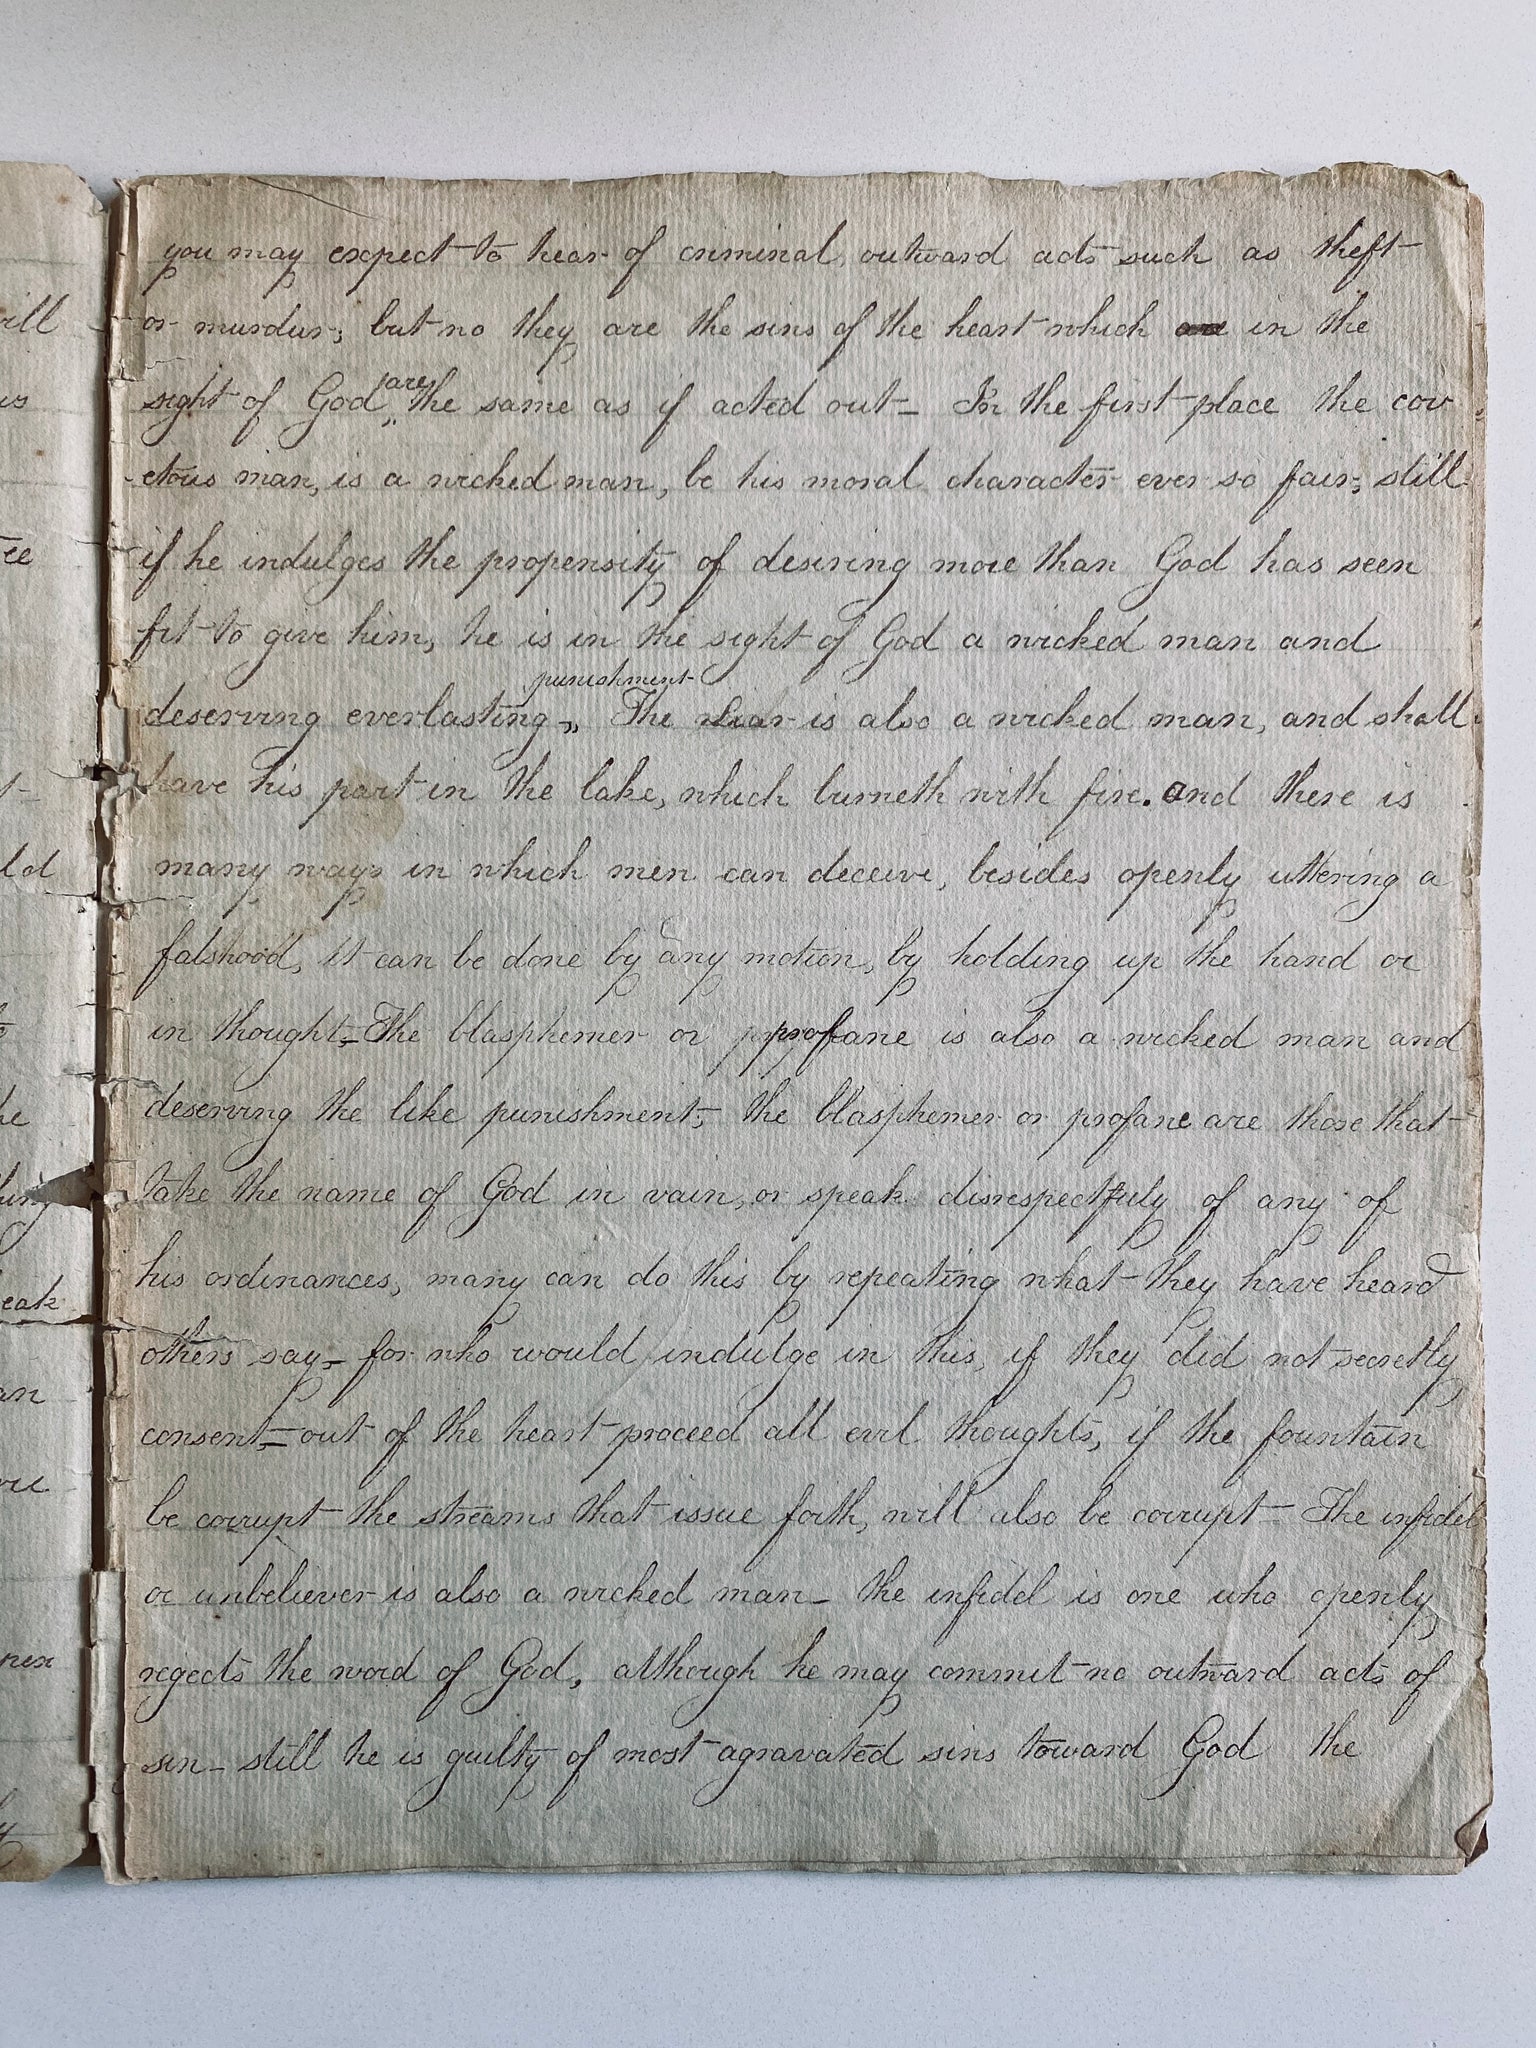 you may expect to hear of criminal, outward acts such as theft
or murdur; but no they are the sins of the heart which are in the
sight of God are the same as if acted out - In the first place the cov
etous man, is a wicked man, be his moral character ever so fair; still
if he indulges the propensity of desiring more than God has seen
fit to give him, he is in the sight of God a wicked man and
punishment
deserving everlasting - The Liar is also a wicked man, and shall
have his part in the lake, which burneth with fire. and there is
many ways in which men can deceive, besides openly uttering a
falshood, it can be done by any motion, by holding up the hand or
in thought - The blasphemer or profane is also a wicked man and
deserving the like punishment; the blasphemer or profane are those that
take the name of God in vain, or speak disrespectfuly of any of
his ordinances, many can do this by repeating what they have heard
others say - for who would indulge in this, if they did not secretly
consent - out of the heart proceed all evil thoughts, if the fountain
be corrupt the streams that issue forth, will also be corrupt - The infidel
or unbeliever is also a wicked man - the infidel is one who openly
regects the word of God, although he may commit no outward acts of
sin - still he is guilty of most agravated sins toward God the
ill
ld
eak
an